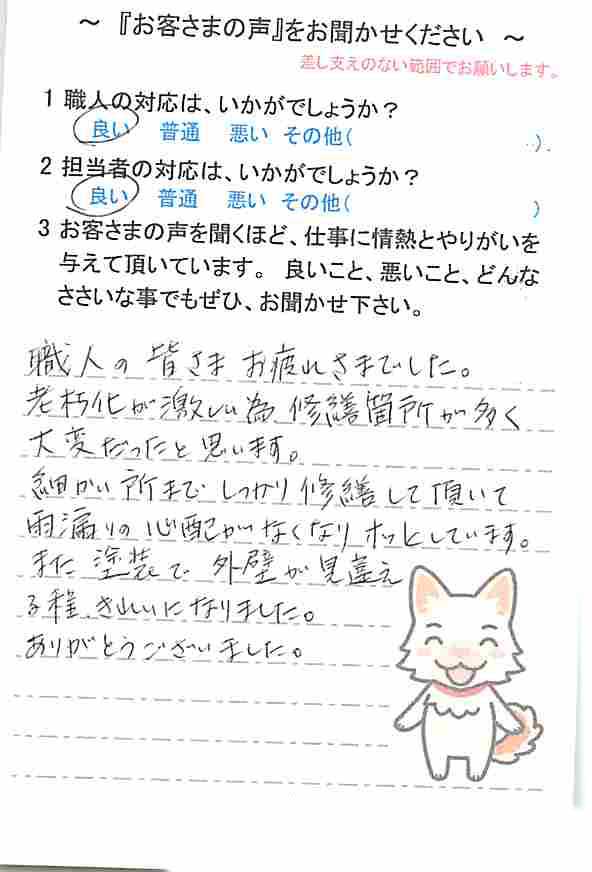 ～ 『お客さまの声』をお聞かせください ～
差し支えのない範囲でお願いします。
1 職人の対応は、いかがでしょうか？
良い 普通 悪い その他( ).
2 担当者の対応は、いかがでしょうか？
良い 普通 悪い その他( )
3 お客さまの声を聞くほど、仕事に情熱とやりがいを
与えて頂いています。 良いこと、悪いこと、どんな
ささいな事でもぜひ、お聞かせ下さい。
職人の皆さまお疲れさまでした。
老朽化が激しい為修繕箇所が多く
大変だったと思います。
細かい所までしっかり修繕して頂いて
雨漏りの心配がなくなりホッとしています。
また塗装で外壁が見違え
る程、きれいになりました。
ありがとうございました。